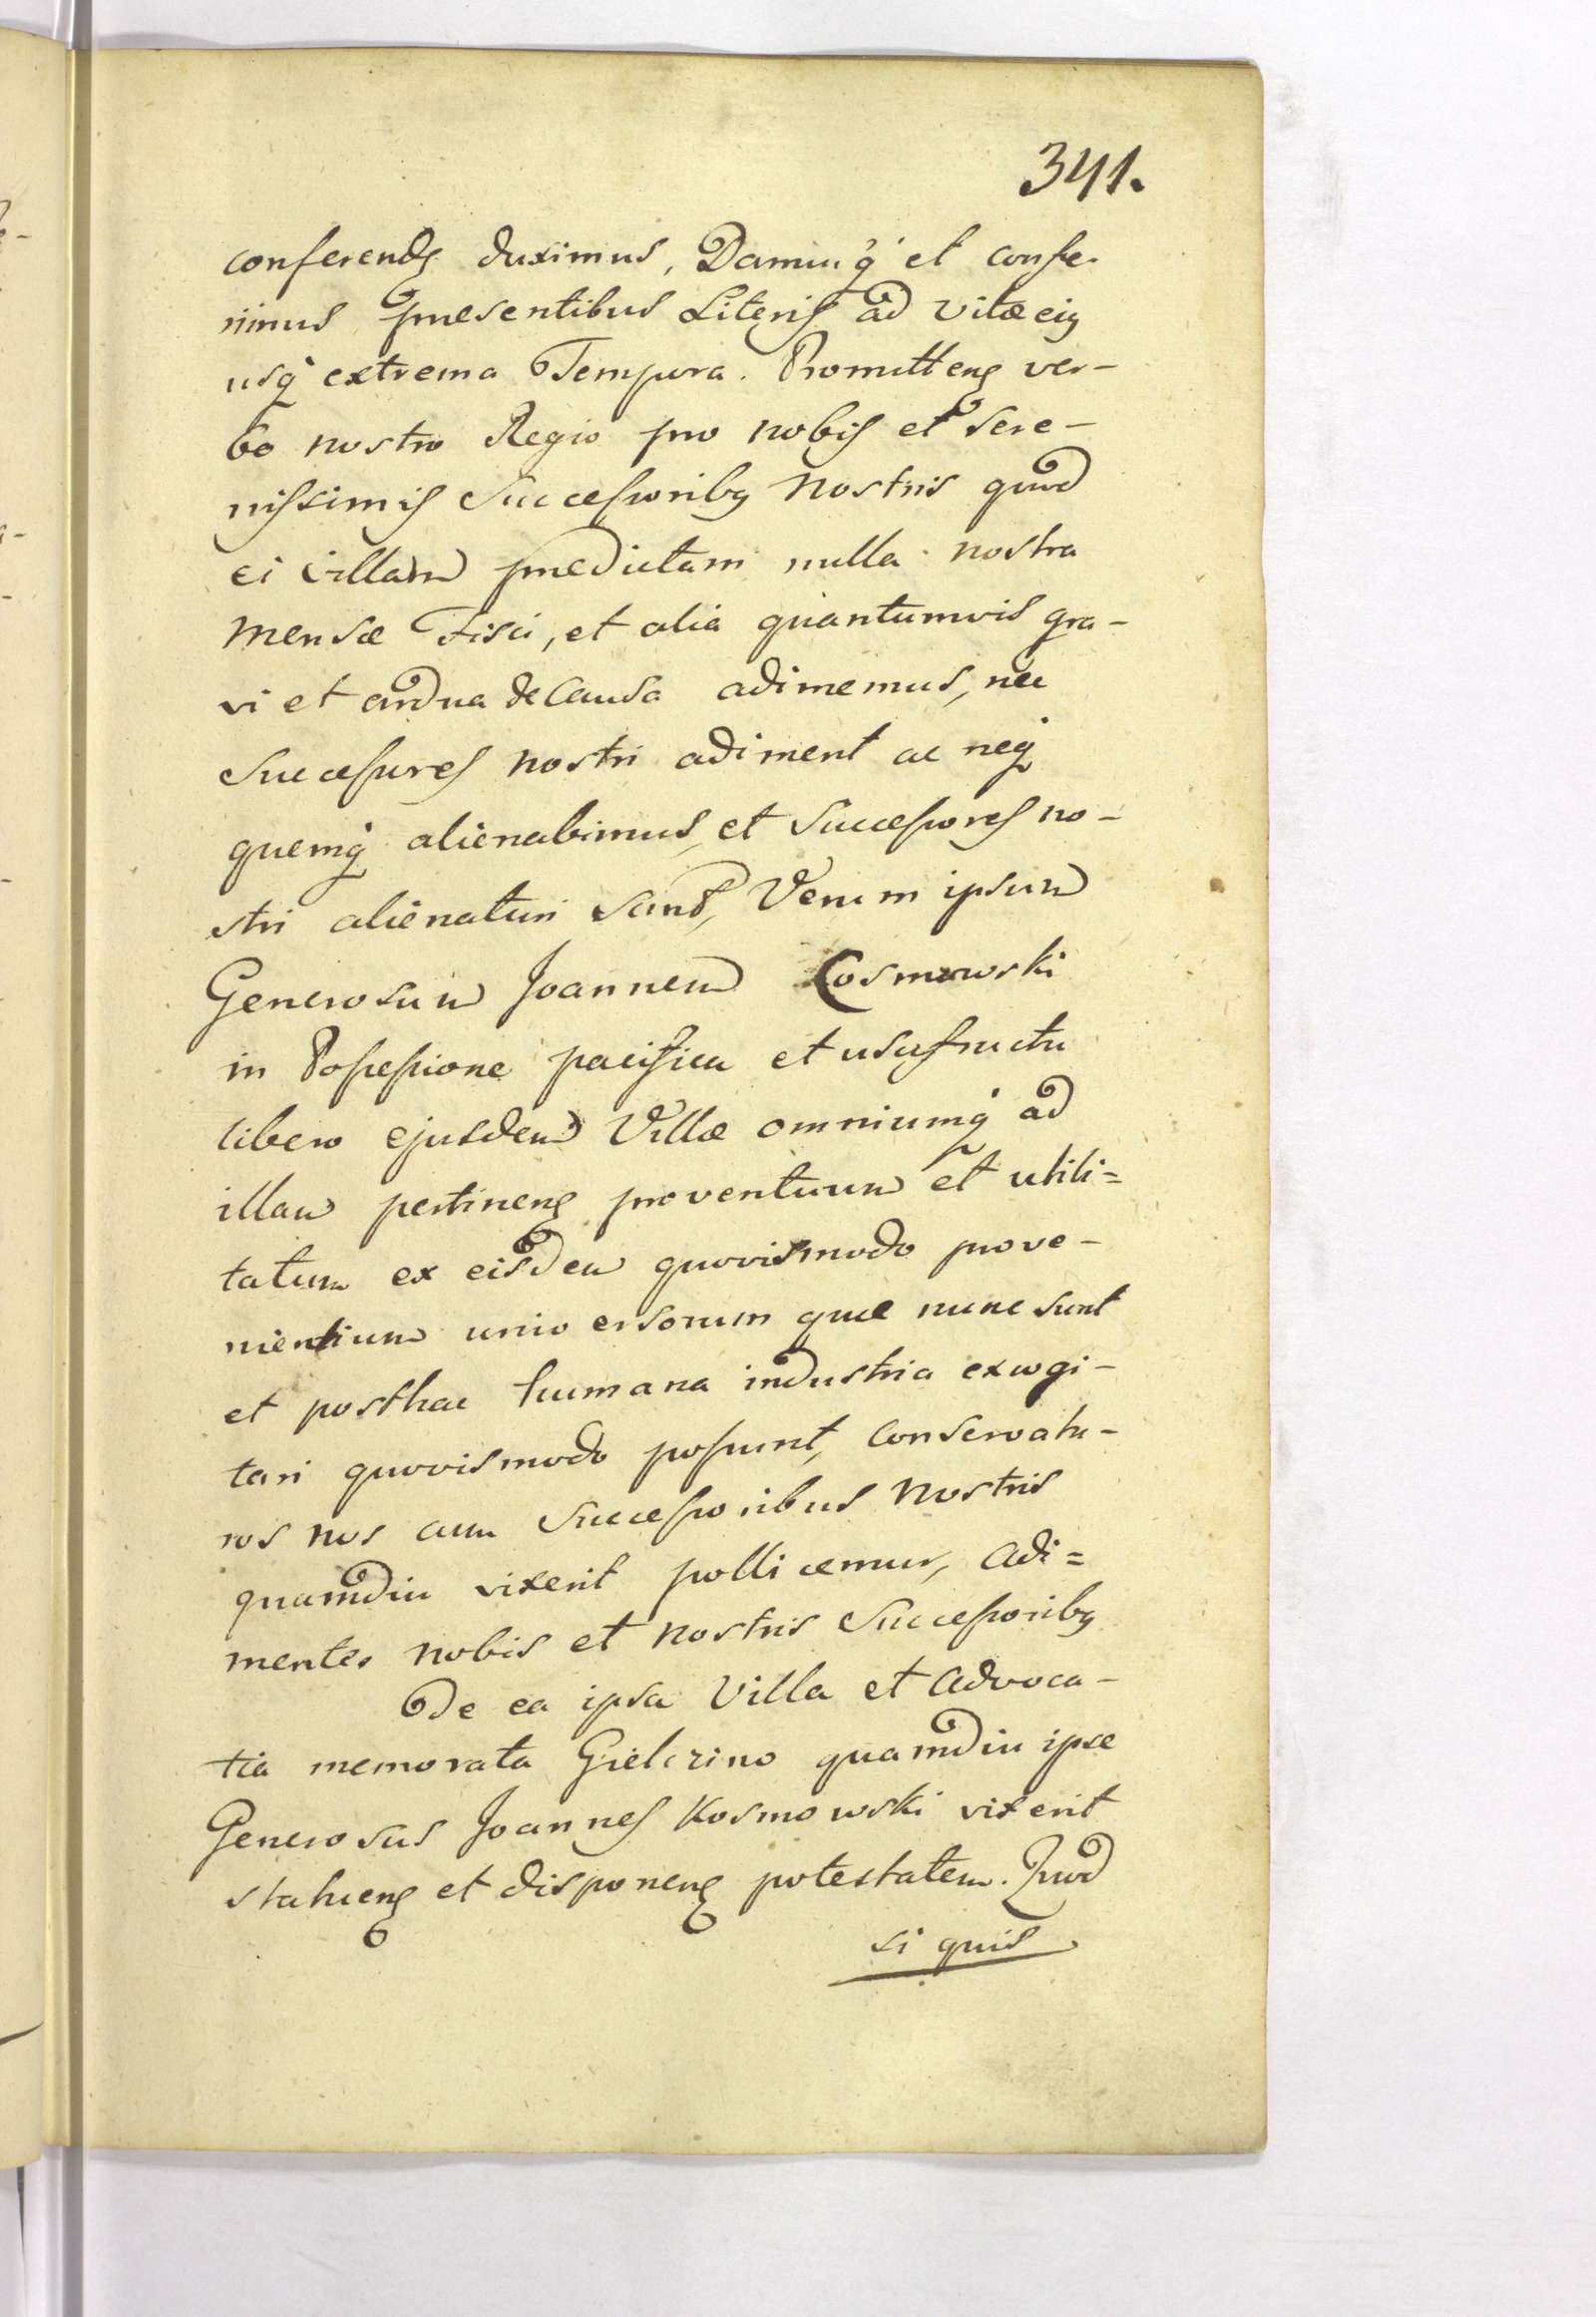 341.
conferendꝫ duximus, Damusq́ et confe-
rimus præsentibus Literis ad vitæ eiꝰ
usq́ extrema Tempora. Promittenꝫ ver-
bo nostro Regio pro nobis et Sere-
nissimis Successoribꝫ Nostris quod
ei villam prædictam nulla nostra
Mensæ Fisci, et alia quantumvis gra-
vi et ardua de Causa adimemus, nec
Successores nostri adiment ac neq́
quemq́ alienabimus, et Successores no-
stri alienaturi Sunt, Verum ipsum
Generosum Joannem Cosmowski
in Possessione pacifica et usufructu
libero ejusdem Villæ omniumq́ ad
illam pertinenꝫ proventuum et utili=
tatum ex eisdem quovismodo prove-
nientium universorum quæ nunc sunt
et posthac humana industria excogi-
tari quovismodo possunt, Conservatu-
ros nos cum Successoribus Nostris
quamdiu vixerit pollicemur, Adi=
mentes nobis et nostris Successoribꝫ
De ea ipsa Villa et Advoca-
tia memorata Gielczino quamdiu ipse
Generosus Joannes Kosmowski vixerit
statuenꝫ et disponenꝫ potestatem. Quod
si quis